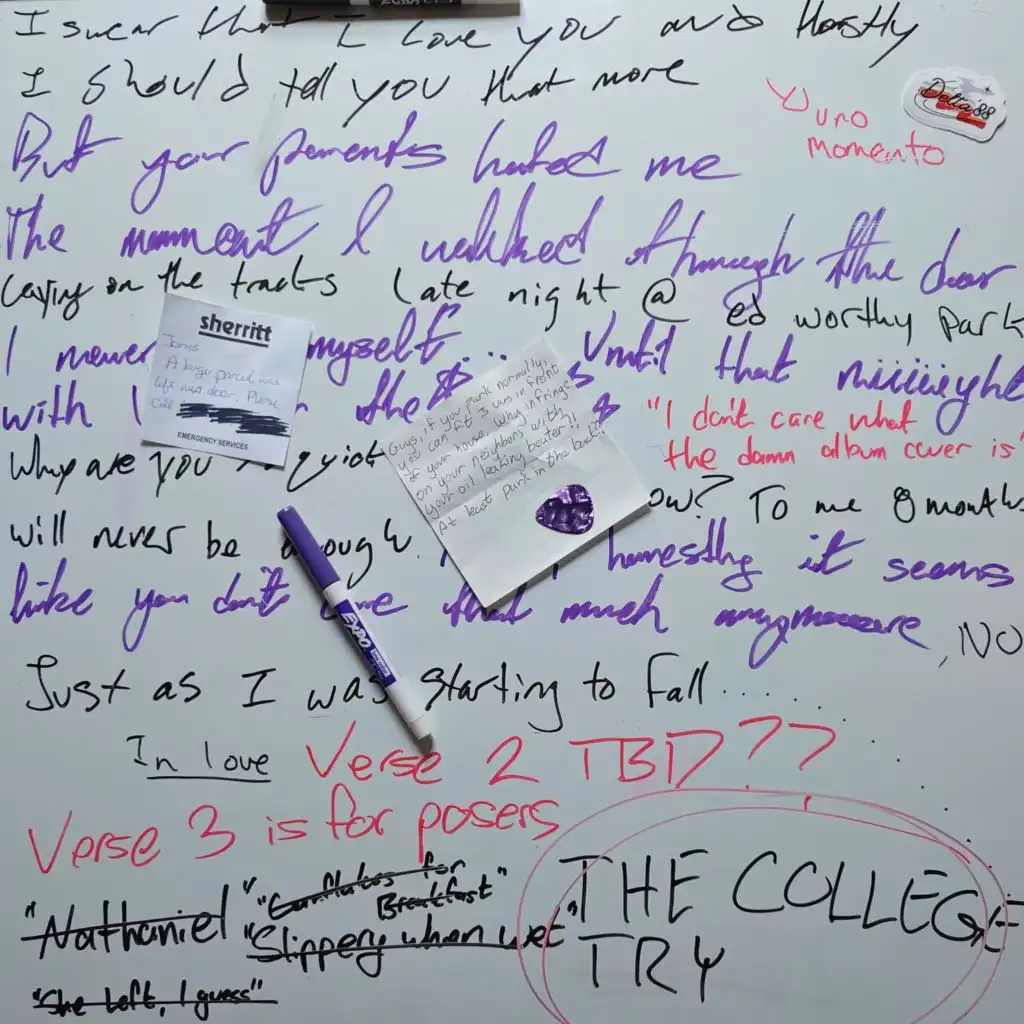 I swear that I love you and Honstly
I should tell you that more
Delta '88
uno
momento
But your perments hated me
The mommeant I walked through the door
Laying on the tracks late night @ ed worthy park
I never myself.... Until that niiiiight
sherritt
James
A large parcel was
left next door. Please
Call
EMERGENCY SERVICES
with the$ $
Guys, if you park normally,
you can fit 3 vans in front
of your house. Why infringe
on your neighbors with
your oil leaking beater?!
At least park in the back!!
"I don't care what
the damn album cover is"
Why are you quiet now? To me 8 months
will never be enough. honestly it seems
like you don't care that much anymoreeare, NO
Just as I was starting to fall.....
In love
Verse 2 TBD??
Verse 3 is for posers
"Nathaniel" "Cornflakes for
Breakfast"
"Slippery when wet"
"She Left, I guess"
THE COLLEGE
TRY